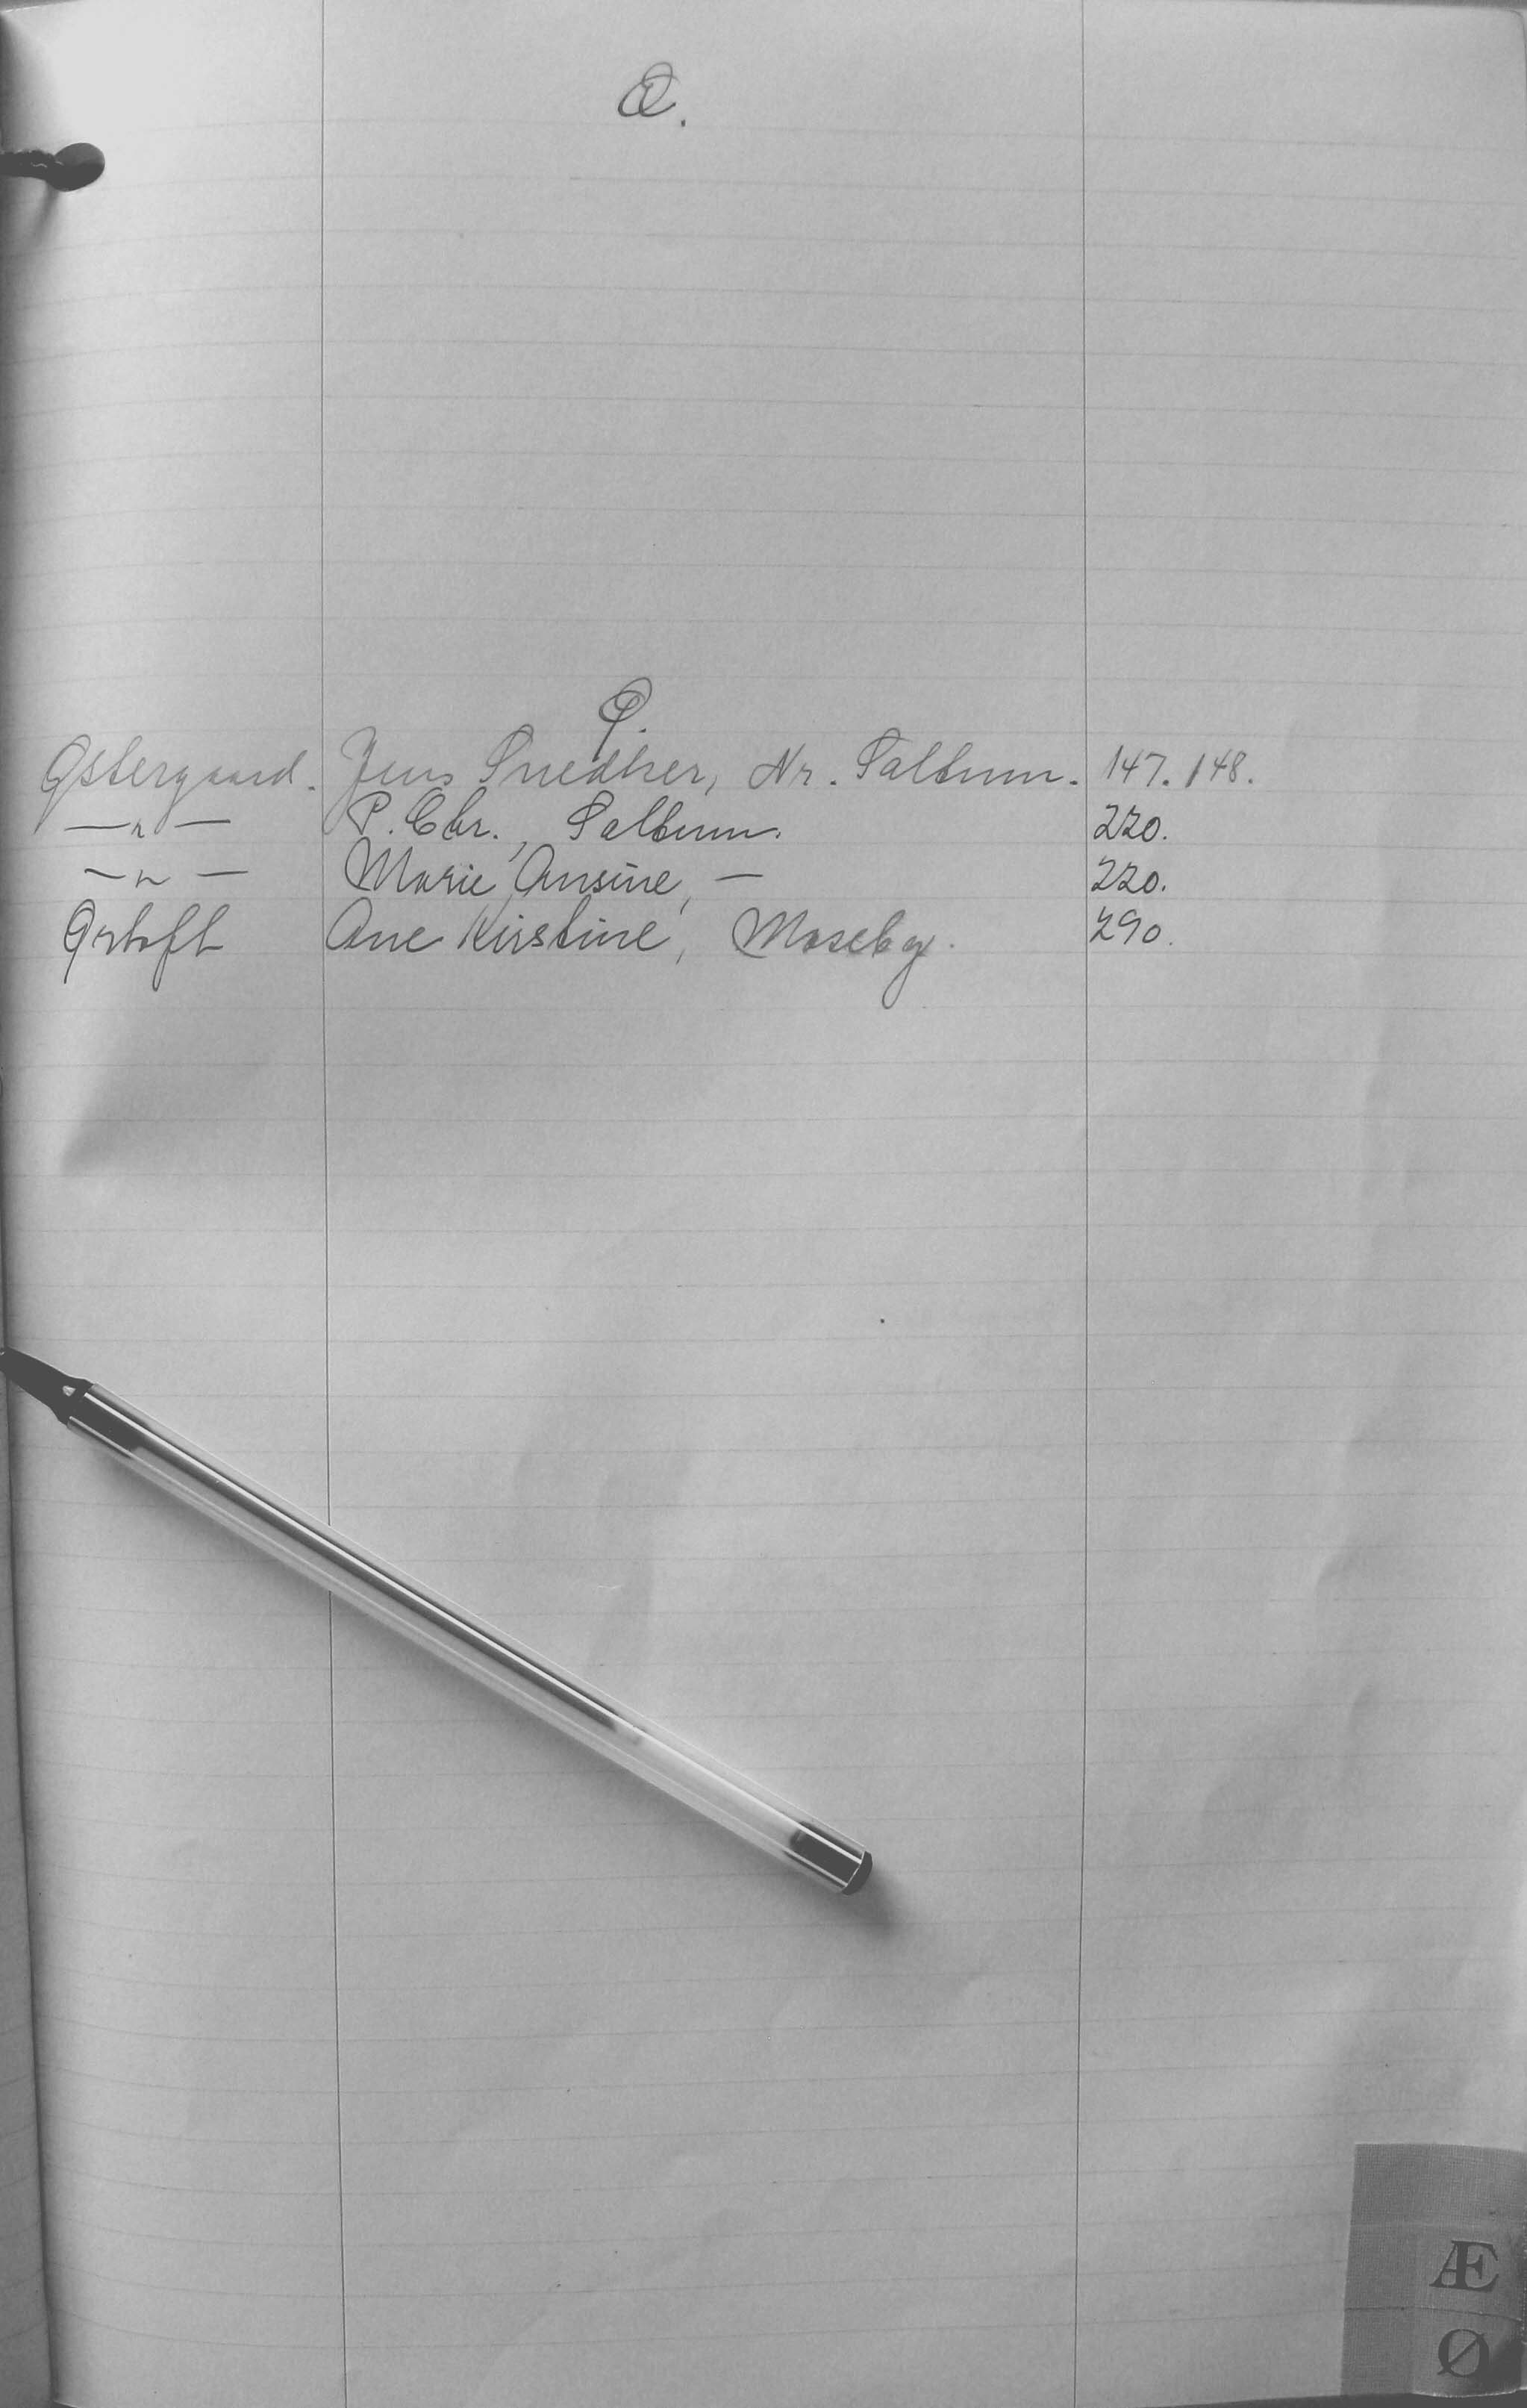 Æ.
Ø.
Østergaard. Jens Snedker, Nr. Saltum. 147. 148.
—"— P. Chr., Saltum. 220.
—"— Marie Ansine, — 220.
Ørtoft Ane Kirstine, Moseby. 290.
Æ
Ø